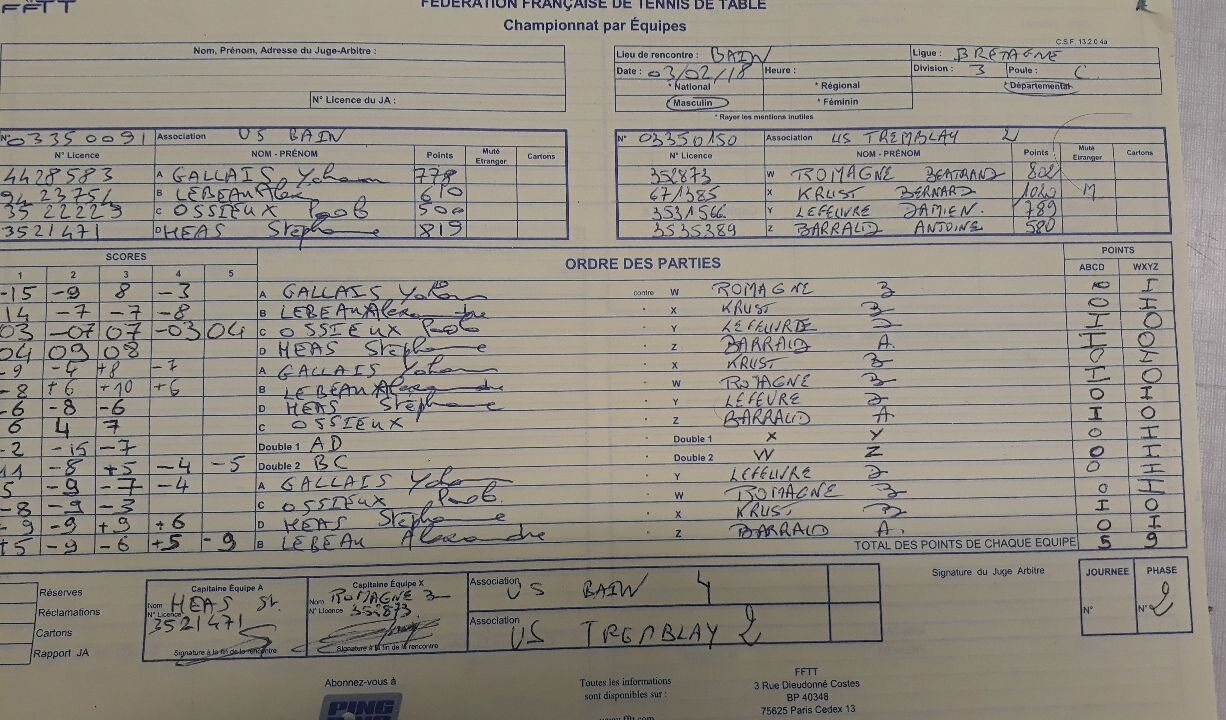 FFTT
FÉDÉRATION FRANÇAISE DE TENNIS DE TABLE
Championnat par Équipes
C.S.F. 13.2.0.4a
Nom, Prénom, Adresse du Juge-Arbitre :
N° Licence du JA :
Lieu de rencontre : BAIN Ligue : BRETAGNE
Date : 03/02/18 Heure : Division : 3 Poule : C
* National * Régional Départemental
Masculin * Féminin
* Rayer les mentions inutiles
N° 03350091 Association US BAIN
N° Licence NOM - PRÉNOM Points Muté Etranger Cartons
4428583 A GALLAIS Yohann 778
9423754 B LEBEAU Alex 610
3522223 C OSSIEUX 500
3521471 D HEAS Stephane 819
N° 03350150 Association US TREMBLAY 2
N° Licence NOM - PRÉNOM Points Muté Etranger Cartons
352873 W ROMAGNE BERTRAND 802
671385 X KRUST BERNARD M
3531566 Y LEFEUVRE DAMIEN. 789
3535389 Z BARRAUD ANTOINE 580
SCORES ORDRE DES PARTIES POINTS
1 2 3 4 5 ABCD WXYZ
-15 -9 8 -3 A GALLAIS contre W ROMAGNE B 0 I
14 -7 -7 -8 B LEBEAU Alexandre X KRUST B 0 I
03 -07 07 -03 04 C OSSIEUX Y LEFEUVRE D I 0
04 09 08 D HEAS Stephane Z BARRAUD A. I 0
-9 -4 +8 -7 A GALLAIS X KRUST B 0 I
-8 +6 +10 +6 B LEBEAU Alexandre W ROMAGNE B I 0
-6 -8 -6 D HEAS Stephane Y LEFEVRE D 0 I
6 4 7 C OSSIEUX Z BARRAUD A. I 0
-2 -15 -7 Double 1 AD Double 1 X Y 0 I
11 -8 +5 -4 -5 Double 2 BC Double 2 W Z 0 I
5 -9 -7 -4 A GALLAIS Y LEFEUVRE D 0 I
-8 -9 -3 C OSSIEUX W ROMAGNE B 0 I
-9 -9 +9 +6 D HEAS Stephane X KRUST B I 0
+5 -9 -6 +5 -9 B LEBEAU Alexandre Z BARRAUD A. 0 I
TOTAL DES POINTS DE CHAQUE EQUIPE 5 9
Réserves
Réclamations
Cartons
Rapport JA
Capitaine Équipe A
Nom HEAS St.
N° Licence 3521471
Signature à la fin de la rencontre
Capitaine Équipe X
Nom ROMAGNE B
N° Licence 352873
Signature à la fin de la rencontre
Association US BAIN 4
Association US TREMBLAY 2
Signature du Juge Arbitre
JOURNEE PHASE
N° N° 2
Abonnez-vous à
PING
Toutes les informations
sont disponibles sur :
www.fftt.com
FFTT
3 Rue Dieudonné Costes
BP 40348
75625 Paris Cedex 13